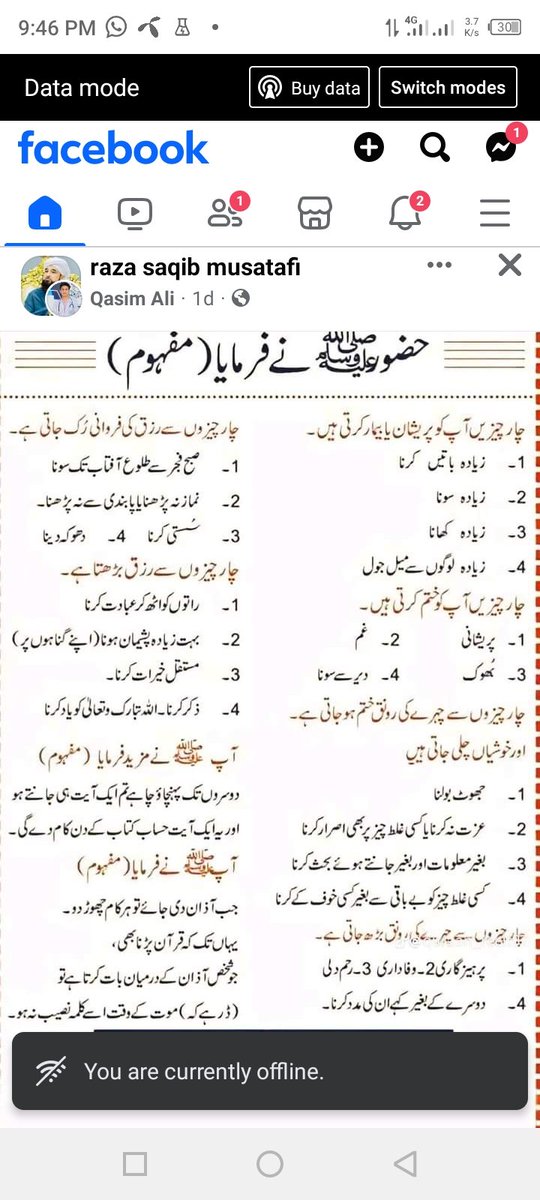 9:46 PM
4G
3.7 K/s
30
Data mode
Buy data
Switch modes
facebook
1
1
2
raza saqib musatafi
Qasim Ali · 1d ·
حضور ﷺ نے فرمایا (مفہوم)
چار چیزیں آپ کو پریشان یا بیمار کرتی ہیں۔
1۔ زیادہ باتیں کرنا
2۔ زیادہ سونا
3۔ زیادہ کھانا
4۔ زیادہ لوگوں سے میل جول
چار چیزیں آپ کو ختم کرتی ہیں۔
1۔ پریشانی 2۔ غم
3۔ بُھوک 4۔ دیر سے سونا
چار چیزوں سے چہرے کی رونق ختم ہو جاتی ہے۔
اور خوشیاں چلی جاتی ہیں
1۔ جھوٹ بولنا
2۔ عزت نہ کرنا یا کسی غلط چیز پر بھی اصرار کرنا
3۔ بغیر معلومات اور بغیر جانتے ہوئے بحث کرنا
4۔ کسی غلط چیز کو بے باقی سے بغیر کسی خوف کے کرنا
چار چیزوں سے چہرے کی رونق بڑھ جاتی ہے۔
1۔ پرہیزگاری 2۔ وفاداری 3۔ رحم دلی
4۔ دوسرے کے بغیر کہے ان کی مدد کرنا۔
چار چیزوں سے رزق کی فروانی رُک جاتی ہے۔
1۔ صبح فجر سے طلوع آفتاب تک سونا
2۔ نماز نہ پڑھنا یا پابندی سے نہ پڑھنا۔
3۔ سُستی کرنا 4۔ دھوکہ دینا
چار چیزوں سے رزق بڑھتا ہے۔
1۔ راتوں کو اٹھ کر عبادت کرنا
2۔ بہت زیادہ پشیمان ہونا (اپنے گناہوں پر)
3۔ مستقل خیرات کرنا۔
4۔ ذکر کرنا۔ اللہ تبارک و تعالیٰ کو یاد کرنا
آپ ﷺ نے مزید فرمایا (مفہوم)
دوسروں تک پہنچاؤ چاہے تم ایک آیت ہی جانتے ہو
اور یہ ایک آیت حساب کتاب کے دن کام دے گی۔
آپ ﷺ نے فرمایا (مفہوم)
جب آذان دی جائے تو ہر کام چھوڑ دو۔
یہاں تک کہ قرآن پڑنا بھی،
جو شخص آذان کے درمیان بات کرتا ہے تو
(ڈر ہے کہ) موت کے وقت اسے کلمہ نصیب نہ ہو۔
You are currently offline.